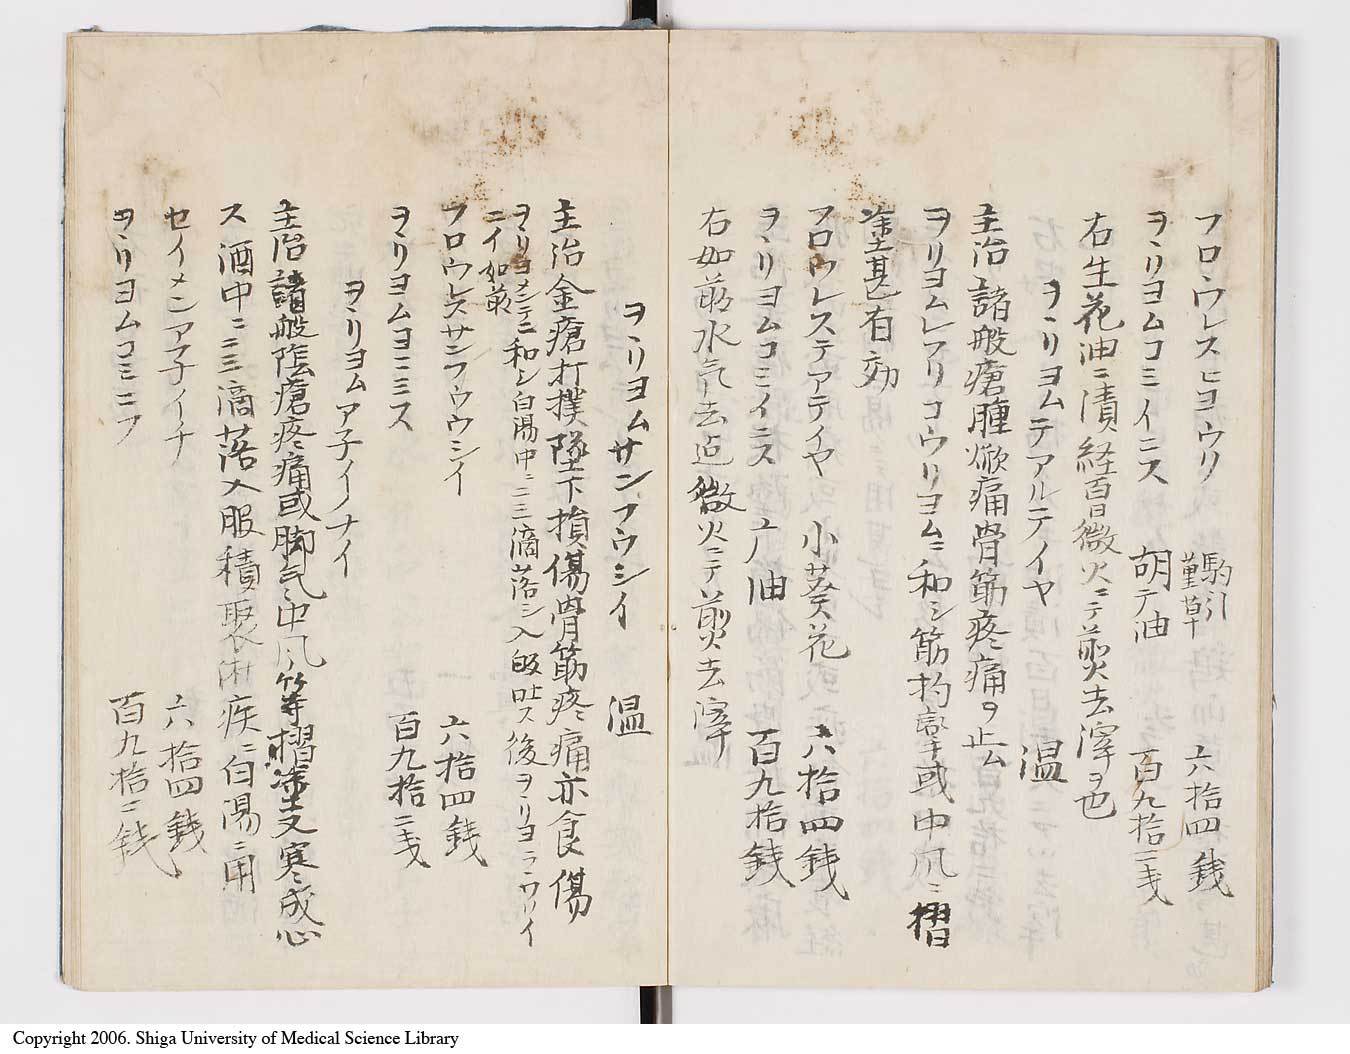 フロウレスヒヨウリ 駒引 菫草 六拾四銭
ヲヽリヨムコミイニス 胡テ油 百九拾二戋
右生花油ニ漬経百日微火ニテ煎去滓ヲ也
ヲヽリヨムテアルテイヤ 温
主治諸般瘡腫焮痛骨筋疼痛ヲ止ム
ヲリヨムレフリコウリヨムニ和シ筋拘攣或中風ニ摺
塗甚有効
フロウレステアテイヤ 小葵花 六拾四銭
ヲヽリヨムコミイニス ユノ油 百九拾銭
右如前水气去迠微火ニテ煎去滓
ヲヽリヨムサンフウシイ 温
主治金瘡打撲墜下損傷骨筋疼痛亦食傷
ヲヽリヨメンテニ和シ白湯中ニ二三滴落シ入 吐ス後ヲヽリヨ
ニイ如前
フロウレスサンフウウシイ 六拾四銭
ヲリヨムヨニミス 百九拾二戋
ヲヽリヨムア子イーノナイ
主治諸般陰瘡疼痛或脚气中風等摺塗又寒 成心
ス酒中ニ二三滴落入服積聚淋疾ニ白湯ニ用
セイメンア子イーナ 六拾四銭
ヲヽリヨムコミニフ 百九拾二銭